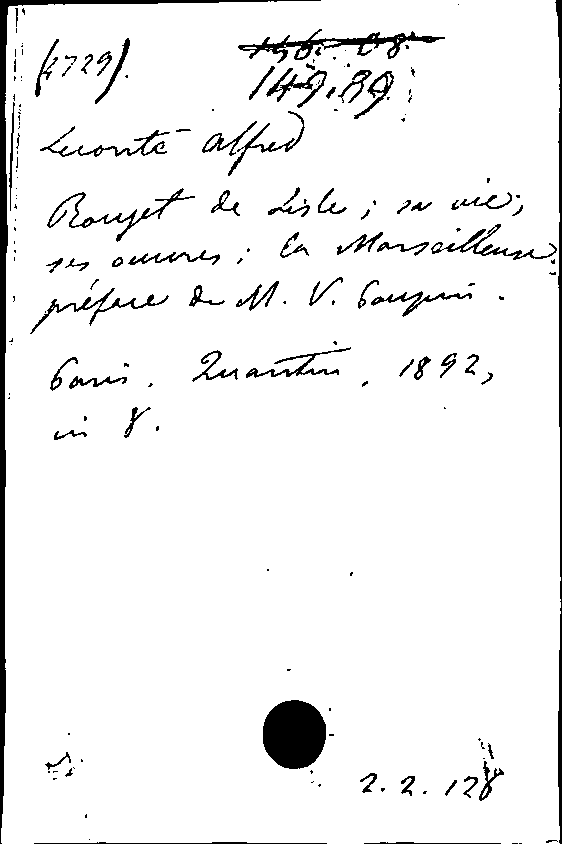 (4729).
149.89
Leconte Alfred
Rouget de Lisle ; sa vie ;
ses œuvres ; la Marseillaise
préface de M. V. Poupin.
Paris. Quantin, 1892,
in 8.
2.2.128